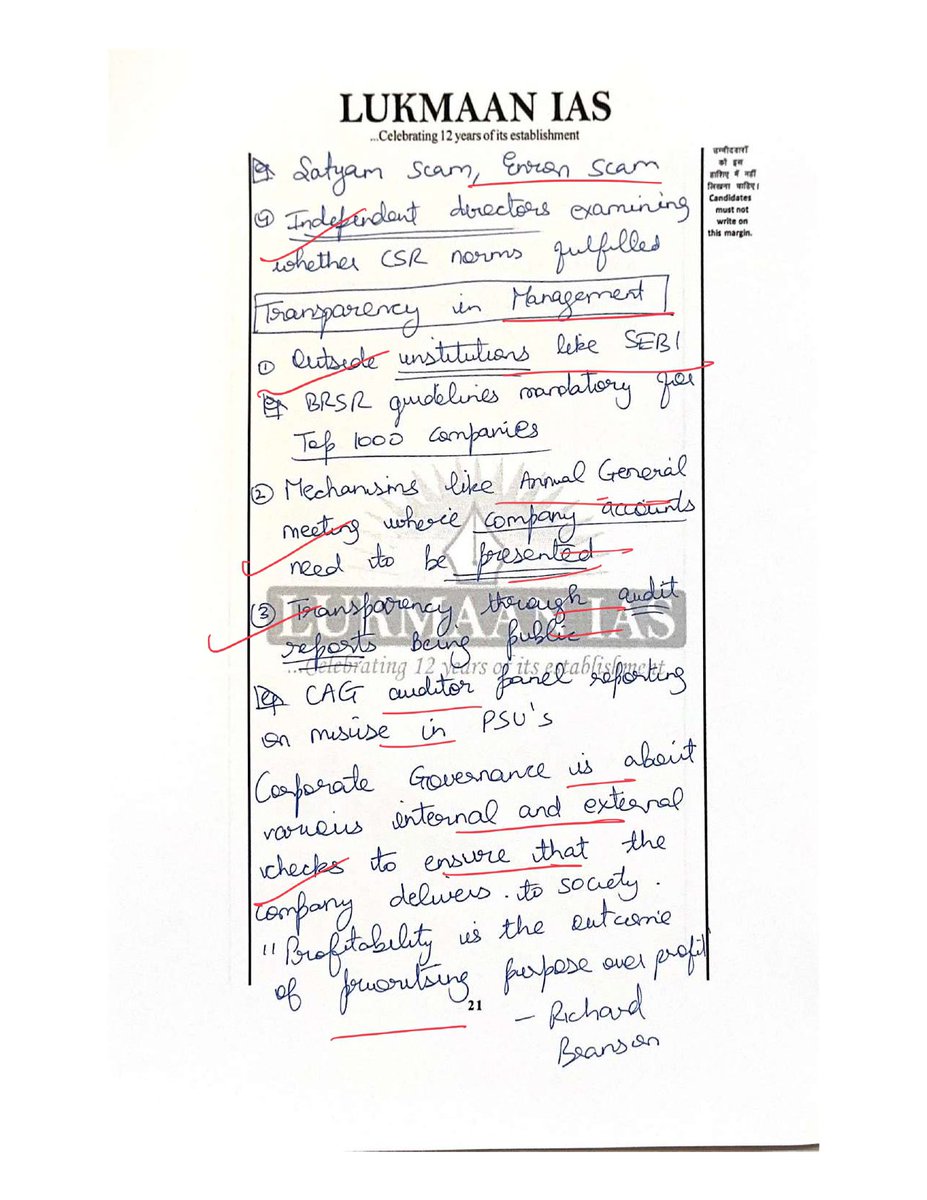 LUKMAAN IAS
...Celebrating 12 years of its establishment
उम्मीदवारों
को इस
हाशिए में नहीं
लिखना चाहिए।
Candidates
must not
write on
this margin.
Eg Satyam scam, Enron scam
④ Independent directors examining
whether CSR norms fulfilled
Transparency in Management
① Outside institutions like SEBI
Eg BRSR guidelines mandatory for
Top 1000 companies
② Mechanisms like Annual General
meeting where company accounts
need to be presented
③ Transparency through audit
reports being public
LUKMAAN IAS
...Celebrating 12 years of its establishment
Eg CAG auditor panel reporting
on misuse in PSU's
Corporate Governance is about
various internal and external
checks to ensure that the
company delivers to society.
"Profitability is the outcome
of prioritsing purpose over profit
21
- Richard
Branson